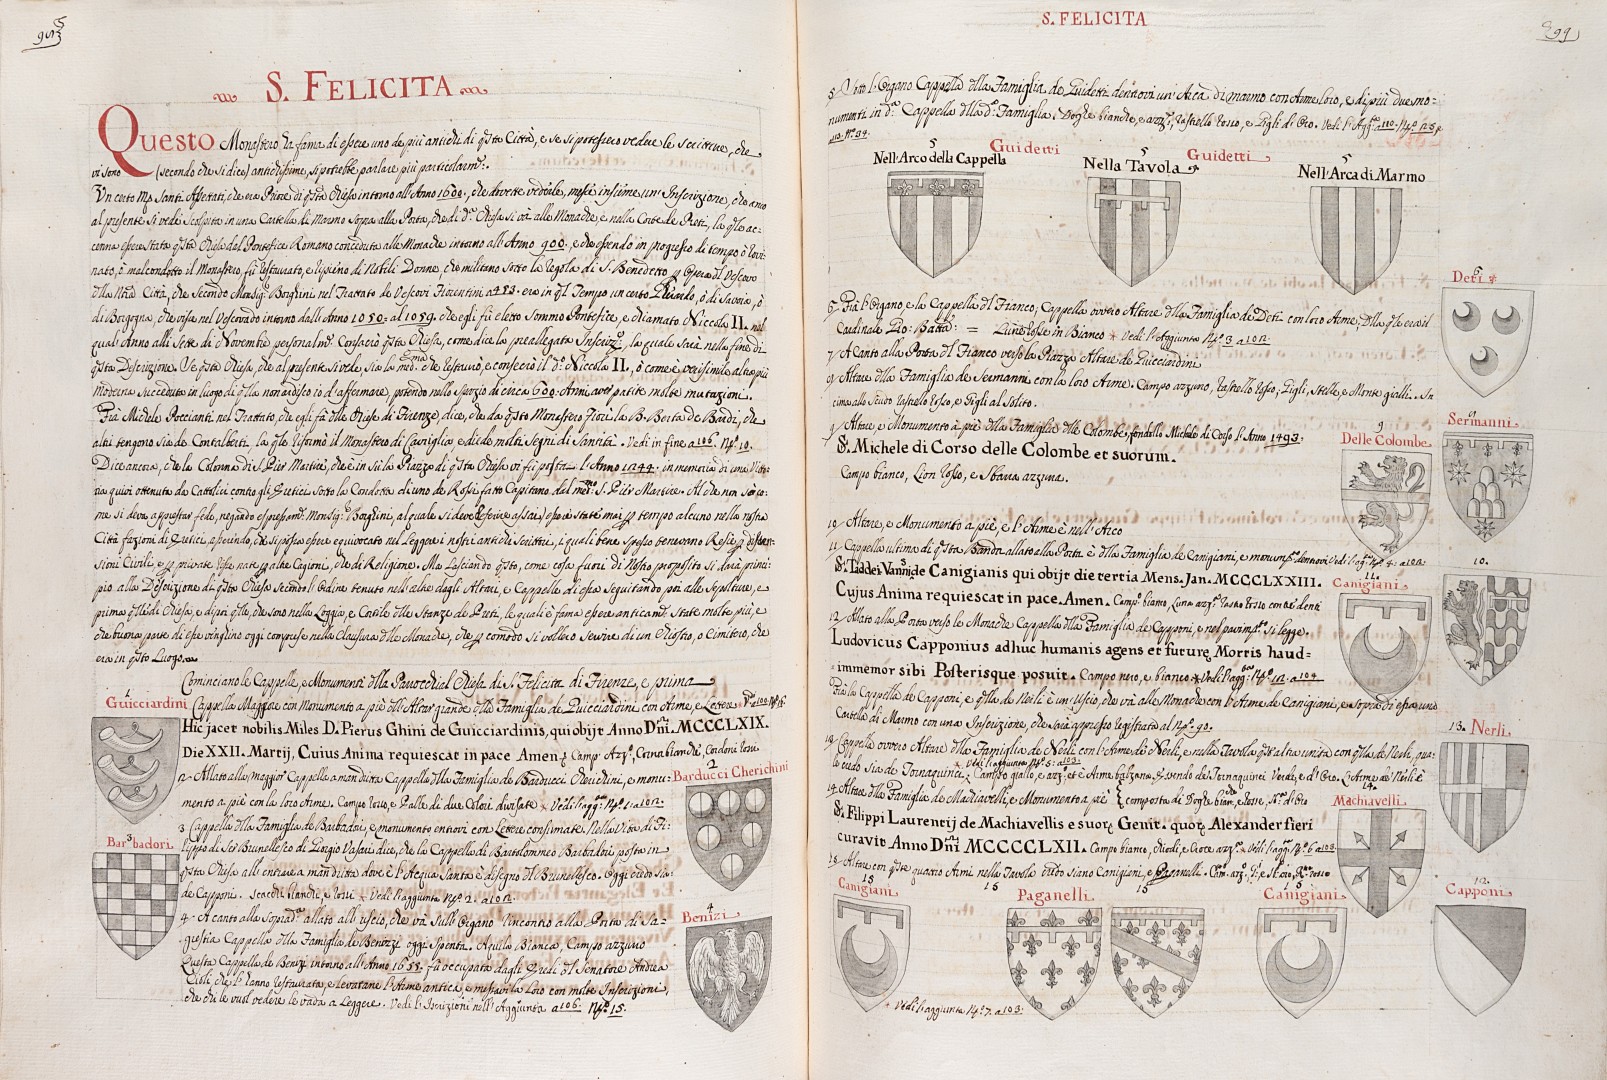 S. FELICITA
Questo Monastero ha fama di essere uno de più antichi di qsta Città, e se si potessero vedere le scritture, che
vi sono (secondo che si dice) antichissime, si potrebbe parlare più particolarm:
Un certo Santi Assettati, che era Priore di qsta Chiesa intorno all'Anno 1600, che dovette vederle, messe insieme un' Inscrizione, che anco
al presente si vede scolpita in una Cartella di Marmo sopra alla Porta, che di Chiesa si và alle Monache, e nella Corte de Preti, la qle ac-
cenna essere stata qsta Chiesa dal Pontefice Romano conceduta alle Monache intorno all'Anno 900, e che essendo in progresso di tempo ò rovi-
nato, ò mal condotto il Monastero, fù restaurato, e ripieno di Nobili Donne, che militano sotto la regola di S. Benedetto opera dl Vescovo
dlla Città, che secondo Monsig: Borghini nel Trattato de Vescovi Fiorentini era in ql Tempo un certo Gherardo, ò di Savoia, ò
di Borgogna, che visse nel Vescovado intorno dall'Anno 1050 al 1059, che egli fù eletto Sommo Pontefice, e chiamato Niccola II. nel
qual Anno alli Sette di Novembre personalm: Consacrò qsta Chiesa, come dice la preallegata Inscriz:, la quale sarà nella fine di
qsta Descrizione. Se qsta Chiesa, che al presente si vede, sia la med: che restaurò, e consecrò il d: Niccola II., ò come è verisimile altra più
moderna succeduta in luogo di qlla non ardisco io d'affermare, potendo nello spazio di circa 600 Anni aver patite molte mutazioni.
Frà Michele Poccianti nel Trattato, che egli fà dlle Chiese di Firenze, dice, che da qsto Monastero fiorì la B. Berta de Bardi, che
altri tengono sia de Cont'Alberti. la qle riformò il Monastero di Cavriglia, e diede molti segni di Santità. Vedi in fine a 106. Nº. 10.
Dice ancora, che la Colonna di S. Pier Martire, che è in sù la Piazza di qsta Chiesa vi fù posta l'Anno 1244. in memoria di una Vitto-
ria quivi ottenuta da Cattolici contro gli Eretici sotto la Condotta di uno de Rossi fatto Capitano dal S. Pier Martire. Al che non sò co-
me si deva apprestar fede, negando espressam: Monsig: Borghini, al quale si deve deferire assai, esser state mai tempo alcuno nella nostra
Città fazioni di Eretici, asserendo, che si possa essere equivocato nel Leggere i nostri antichi Scrittori, i quali bene spesso tenevano Resie dissen-
sioni Civili, e private risse nate altre Cagioni, che di Religione. Ma lasciando qsto, come cosa fuori di Nostro proposito si darà princi-
pio alla Descrizione di qsta Chiesa secondo l'ordine tenuto nell'altre dagli Altari, e Cappelle di essa seguitando poi alle Sepolture, e
prima qlle di Chiesa, e di poi qlle, che sono nella Loggia, e Cortile dlle Stanze de Preti, le quali è fama essere anticam: State molte più, e
che buona parte di esse venghino oggi comprese nella Clausura dlle Monache, che comodo si vollero servire di un Chiostro, o Cimitero, che
era in qsto Luogo.
Cominciano le Cappelle, e Monumenti dlla Parrocchial Chiesa di S. Felicita di Firenze, e prima
Guicciardini 1
Cappella Maggiore con Monumento a piè dll'Altar grande dlla Famiglia de Guicciardini con Arme, e Lettere
Hic jacet nobilis Miles D. Pierus Ghini de Guicciardinis, qui obijt Anno Dñi. MCCCLXIX.
Die XXII. Martij, Cuius Anima requiescat in pace Amen. Camp: Azz:, Corna bianche, Cordoni rossi
2 Allato alla maggior Cappella a man dritta Cappella dlla Famiglia de Barducci Cherichini, e monu-
mento a piè con la loro Arme. Campo rosso, e Palle di due Colori divisate. Vedi l'agg: Nº. 1. a 102.
Barducci Cherichini 2
3 Cappella dlla Famiglia de Barbadori, e monumento entrovi con Lettere consumate. Nella Vita di Fi-
lippo di Ser Brunellesco di Giorgio Vasari dice, che la Cappella di Bartolommeo Barbadori posta in
qsta Chiesa all'entrare a man dritta dove è l'Acqua Santa è disegno di Brunellesco. Oggi credo sia
de Capponi. scacchi bianchi, e rossi. Vedi l'aggiunta Nº. 2. a 102.
Barbadori. 3
4 A canto alla sopradª allato all'uscio, che và sull'Organo rincontro alla Porta di Sa-
grestia Cappella dlla Famiglia de Benizzi oggi spenta. Aquila Bianca, Campo azzurro
Questa Cappella de Benizi intorno all'Anno 1655. fù occupata dagli Eredi dl Senatore Andrea
Cioli che l'hanno restaurata, e levatane l'Arme antica, e messavi la Loro con molte Inscrizioni,
che chi le vuol vedere le vada a Leggere. Vedi l'Iscrizioni nell'Aggiunta a 106. Nº. 15.
Benizi 4
S. FELICITA
99
5 Sotto l'Organo Cappella dlla Famiglia de Guidetti dentrovi un' Arca di marmo con Arme loro, e di più due mo-
numenti in dª. Cappella dlla dª. Famiglia. Doghe bianche, e azz:, rastrello rosso, e Gigli d'Oro. Vedi l'Agg:
Guidetti Guidetti
5 Nell'Arco della Cappella
5 Nella Tavola
5 Nell'Arca di Marmo
Deti 6
6 Frà l'Organo, e la Cappella dl Fianco, Cappella ovvero Altare dlla Famiglia de Deti con loro Arme, dlla qle era il
Cardinale Gio: Battª: = Lune rosse in Bianco Vedi l'Aggiunta Nº. 3 a 102.
7 A Canto alla Porta dl Fianco verso la Piazza Altare de Guicciardini
8 Altare dlla Famiglia de Sermanni con la loro Arme. Campo azzurro, rastrello rosso, Gigli, Stelle, e Monte gialli. In
cima allo Scudo rastrello rosso, e Gigli al Solito.
9 Altare, e Monumento à piè dlla Famiglia dlle Colombe, fondollo Michele di Corso l'Anno 1493.
S. Michele di Corso delle Colombe et suorum.
Campo bianco, Lion rosso, e Sbarra azzurra.
9 Delle Colombe
Sermanni
10 Altare, e Monumento a piè, e l'Arme è nell'Arco
11 Cappella ultima di qsta Banda allato alla Porta è dlla Famiglia de Canigiani, e monum: dentrovi Vedi l'agg: Nº. 4. a 102.
S. Taddei Vannis de Canigianis qui obijt die tertia Mens. Jan. MCCCLXXIII.
Cujus Anima requiescat in pace. Amen. Campº. bianco, Luna azz: rastrº rosso con tre denti
Canigiani 11.
10.
12 Allato alla Porta verso le Monache Cappella dlla Famiglia de Capponi, e nel pavimº. si legge.
Ludovicus Capponius adhuc humanis agens et futuræ Mortis haud-
immemor sibi Posterisque posuit. Campo nero, e bianco Vedi l'agg: Nº. 12. a 104
Frà la Cappella de Capponi, e qlla de Nerli è un'uscio, che và alle Monache con l'Arme de Canigiani, e sopra di essa una
Cartella di Marmo con una Inscrizione, che sarà appresso registrata al Nº. 90.
13 Cappella ovvero Altare dlla Famiglia de Nerli con l'Arme de Nerli, e nella Tavola un'altra unita con qlla de Nerli, qua-
le credo sia de Tornaquinci. Vedi l'aggiunta Nº. 5. a 103. Campo giallo, e azz: et è Arme balzana, essendo de Tornaquinci Verde, e d'Oro. L'Arme de Nerli è
13. Nerli
14 Altare dlla Famiglia de Machiavelli, e Monumento a piè composta di Doghe bianche, e rosse
Machiavelli 14.
S. Filippi Laurentij de Machiavellis e suor: Genit. quor: Alexander fieri
curavit Anno Dñi MCCCCCLXII. Campo bianco, chiodi, e Croce azz: Vedi l'agg: Nº. 6 a 103.
15 Altare con qste quattro Armi nella Tavola credo siano Canigiani, e Paganelli.
15 Canigiani
15 Paganelli
15
15 Canigiani
12. Capponi
Vedi l'aggiunta Nº. 7. a 103.